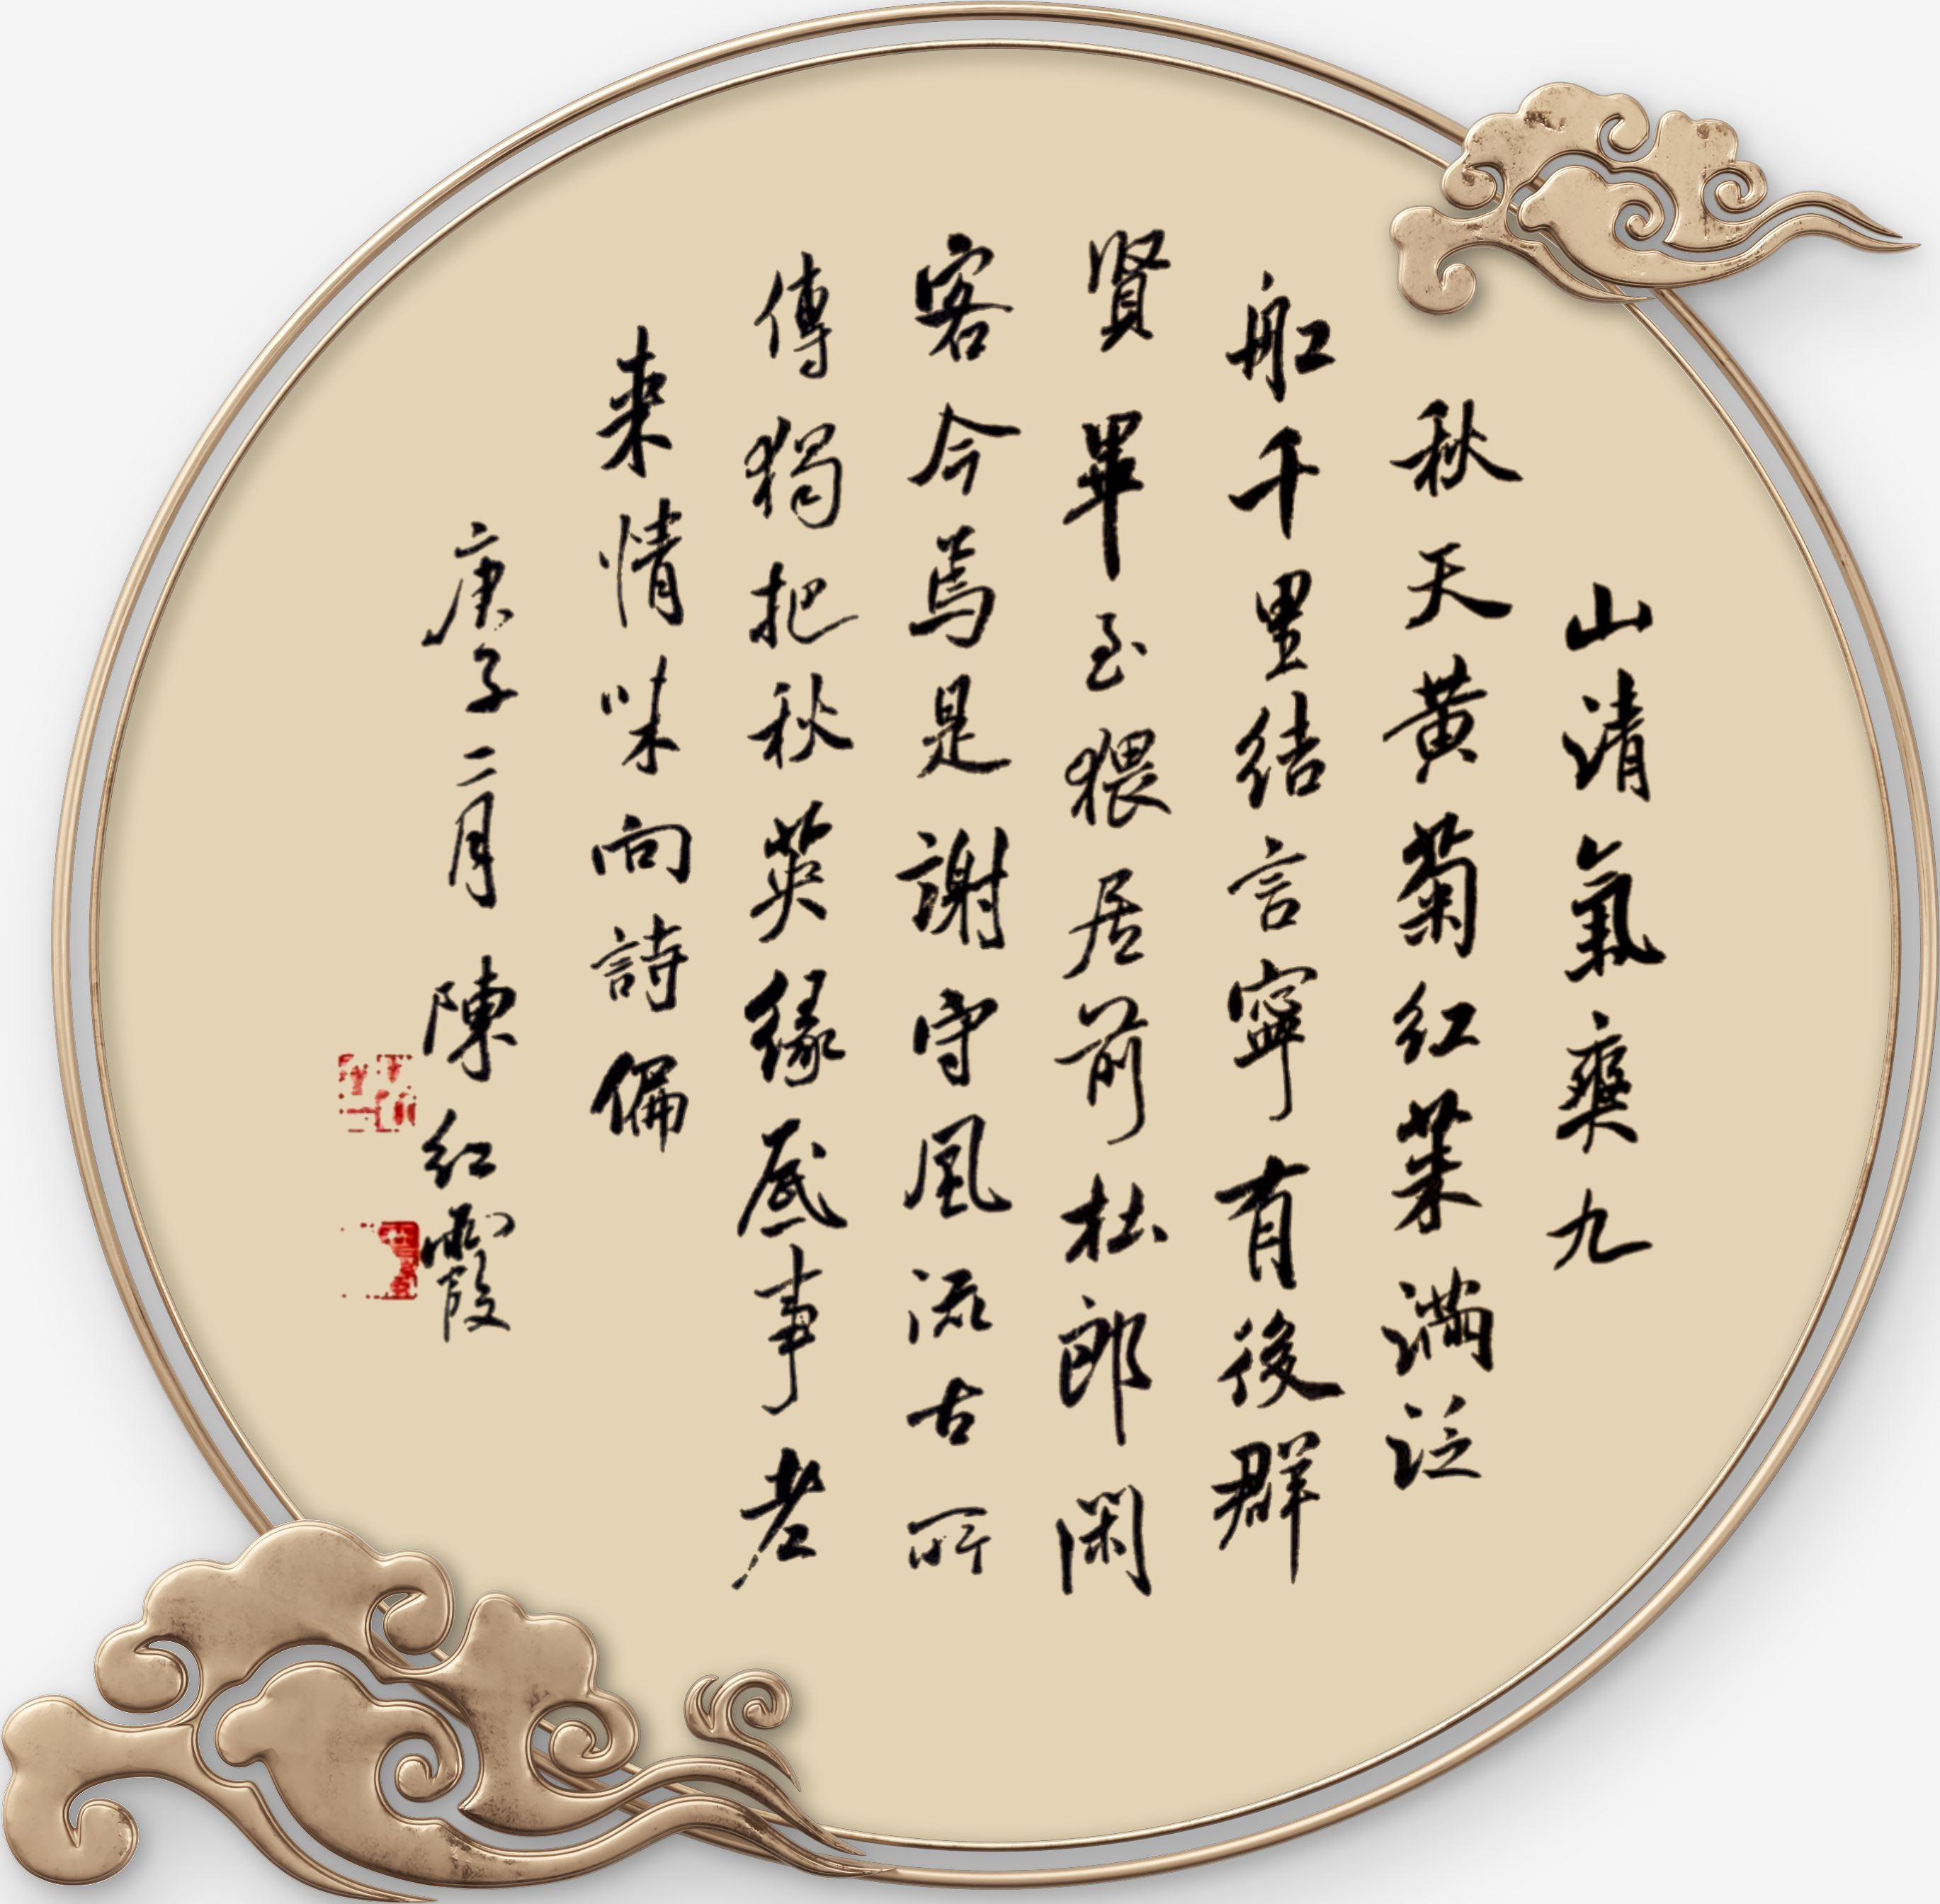 山清氣爽九
秋天黄菊紅茱滿泛
舡千里結言寧有後群
賢畢至猥居前杜郎閑
客今焉是謝守風流古所
傳獨把秋英緣底事老
来情味向詩偏
庚子二月陳紅霞